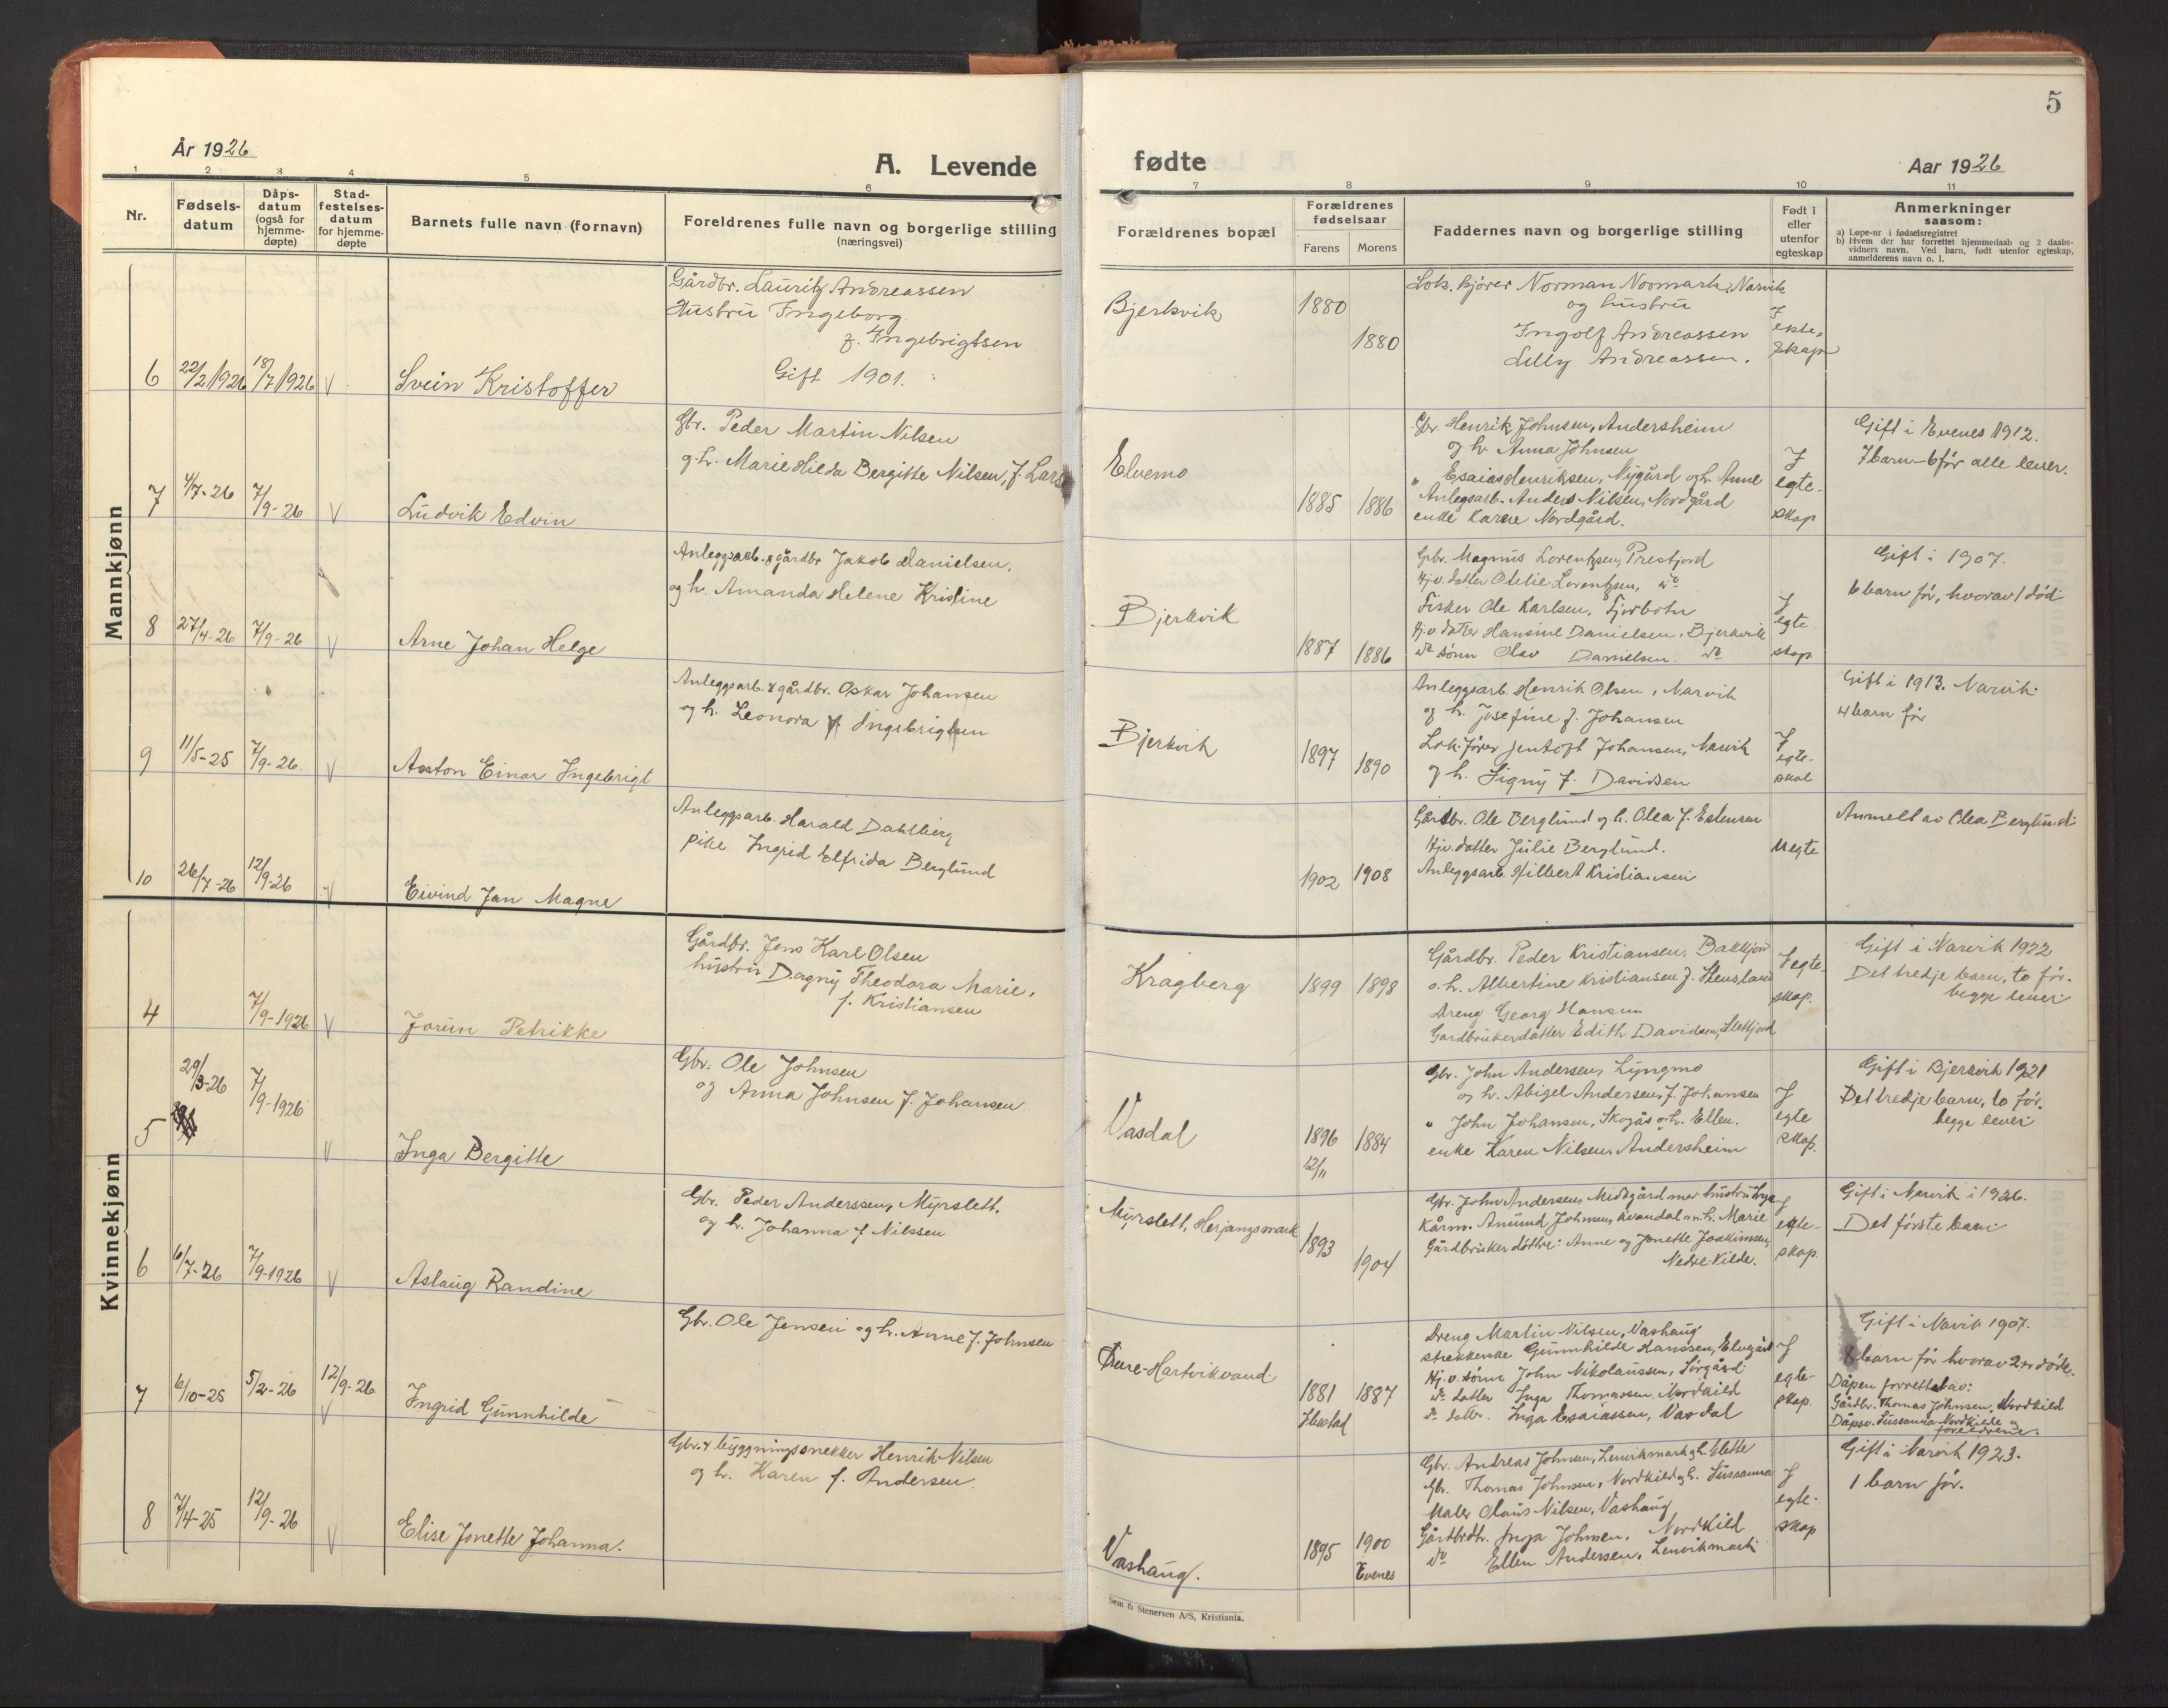 5
År 1926
A. Levende
fødte
Aar 1926
1 2 3 4 5 6 7 8 9 10 11
Nr.
Fødsels-
datum
Dåps-
datum
(også for
hjemme-
døpte)
Stad-
festelses-
datum
for hjemme-
døpte
Barnets fulle navn (fornavn)
Foreldrenes fulle navn og borgerlige stilling
(næringsvei)
Forældrenes bopæl
Forældrenes
fødselsaar
Farens Morens
Faddernes navn og borgerlige stilling
Født i
eller
utenfor
egteskap
Anmerkninger
saasom:
a) Løpe-nr i fødselsregistret
b) Hvem der har forrettet hjemmedaab og 2 daabs-
vidners navn. Ved barn, født utenfor egteskap,
anmelderens navn o. l.
Mannkjønn
6 22/2 1926 18/7 1926 V Svein Kristoffer
Gårdbr. Lauritz Andreassen
Hustru Ingeborg
f. Ingebrigtsen
Gift 1901.
Bjerkvik
1880
1880
Lok. kjører Norman Normark, Narvik
og hustru
Ingolf Andreassen
Lilly Andreassen.
I
ekte-
skap
7 4/7-26 7/9-26 V Ludvik Edvin
Gbr. Peder Martin Nilsen
og h. Marie Hilda Bergitte Nilsen, f. Lars
Elvemo
1885 1886
Gbr. Henrik Johnsen, Andersheim
og h. Anna Johnsen
" Esaias Henriksen, Nygård og h. Anne
Anlegsarb. Anders Nilsen, Nordgård
enke Karen Nordgård.
I
egte-
skap
Gift i Evenes 1912.
7 barn - 6 før alle lever.
8 27/4-26 7/9-26 V Arne Johan Helge
Anleggsarb. & gårdbr Jakob Danielsen,
og h. Amanda Helene Kristine
Bjerkvik
1887 1886
Gbr. Magnus Lorentzsen, Prestjord
Hj.v. datter Otelie Lorentzsen, do
Fisker Ole Karlsen,
Hj.v. datter Hansine Danielsen, Bjerkvik
do sønn Olav Danielsen. do
I
egte
skap
Gift i 1907.
6 barn før, hvorav 1 død
9 11/5-25 7/9-26 V Anton Einar Ingebrigt
Anleggsarb. & gårdbr. Oskar Johansen
og h. Leonora f. Ingebrigtsen
Bjerkvik
1897 1890
Anleggsarb. Henrik Olsen, Narvik
og h. Josefine f. Johansen
Lok.fører Jentoft Johansen, Narvik
og h. Signy f. Davidsen
I
egte-
skal
Gift i 1913. Narvik
4 barn før
10 26/7-26 12/9-26 V Eivind Jan Magne
Anleggsarb. Harald Dahlberg
pike Ingrid Elfrida Berglund
1902 1908
Gårdbr. Ole Berglund og h. Olea f. Estensen
Hjv. datter Julie Berglund.
Anleggsarb. Hilbert Kristiansen
Uegte
Anmelt av Olea Berglund
Kvinnekjønn
4 7/9-1926 V Jorun Petrikke
Gårdbr. Jens Karl Olsen
hustru Dagny Theodora Marie,
f. Kristiansen
Kragberg
1899 1898
Gårdbr. Peder Kristiansen, Bakkjord
o.h. Albertine Kristiansen f. Stensland
Dreng Georg Hansen
Gardbrukerdatter Edith Davidsen, Slettjord
I egte-
skap.
Gift i Narvik 1922
Det tredje barn, to før.
begge lever
5 29/3-26 7/9-1926 V Inga Bergitte
Gbr. Ole Johnsen
og Anna Johnsen f. Johansen.
Vasdal
1896 1884
12/11
Gbr. John Andersen, Lyngmo
og h. Abigel Andersen, f. Johansen
" John Johansen, Skogås o.h. Ellen.
enke Karen Nilsen, Andersheim
I
egte
skap.
Gift i Bjerkvik 1921
Det tredje barn, to før.
begge lever
6 6/7-26 7/9-1926 V Aslaug Randine
Gbr. Peder Anderssen, Myrslett.
og h. Johanna f Nilssen
Myrslett, Herjangsmark
1893
1904
Gbr. John Andersen, Midtgård med hustru Inga
Kårm. Amund Johnsen, Kvandal m.h. Marie
Gårdbruker døttre: Anne og Jonette Joakimsen,
Nedre-Kilde.
I
egte-
skap.
Gift i Narvik i 1926.
Det første barn
7 6/10-25 5/2-26 12/9-26 V Ingrid Gunnhilde
Gbr. Ole Jensen og h. Anne f. Johnsen
-Hartvikvand
1881 1887
Dreng Martin Nilsen, Vashaug
Gunnhilde Hanssen, Elvegård
Hj.v. sønn John Nikolaussen, Sørgård
do datter Inga Thomassen, Nordkild
do datter. Inga Esaiassen, Vasdal
I
egte-
skap.
Gift i Navik 1907.
8 barn før hvorav 2 er døde.
Dåpen forrettet av:
Gårdbr. Thomas Johnsen, Nordkild
Dåpsv. Sussanna Nordkilde og
foreldrene.
8 7/4-25 12/9-26 V Elise Jonette Johanna.
Gbr. & byggningssnekker Henrik Nilsen
og h. Karen f. Andersen.
Vashaug.
1895 1900
Evenes
Gbr. Andreas Johnsen, Lenvikmark og h. Elette
Gbr. Thomas Johnsen, Nordkild og h. Sussanna
Maler Olaus Nilsen, Vashaug
Gårdbrdtr. Inga Johnsen, Nordkild
do Ellen Andersen, Lenvikmark
I
egte-
skap
Gift i Narvik 1923.
1 barn før.
Sem & Stenersen A/S, Kristiania.